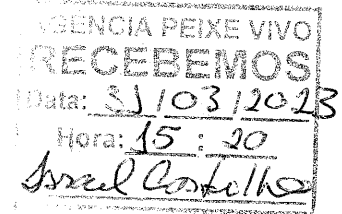 AGÊNCIA PEIXE VIVO
RECEBEMOS
Data: 31/03/2023
Hora: 15 : 20
Israel Castilho